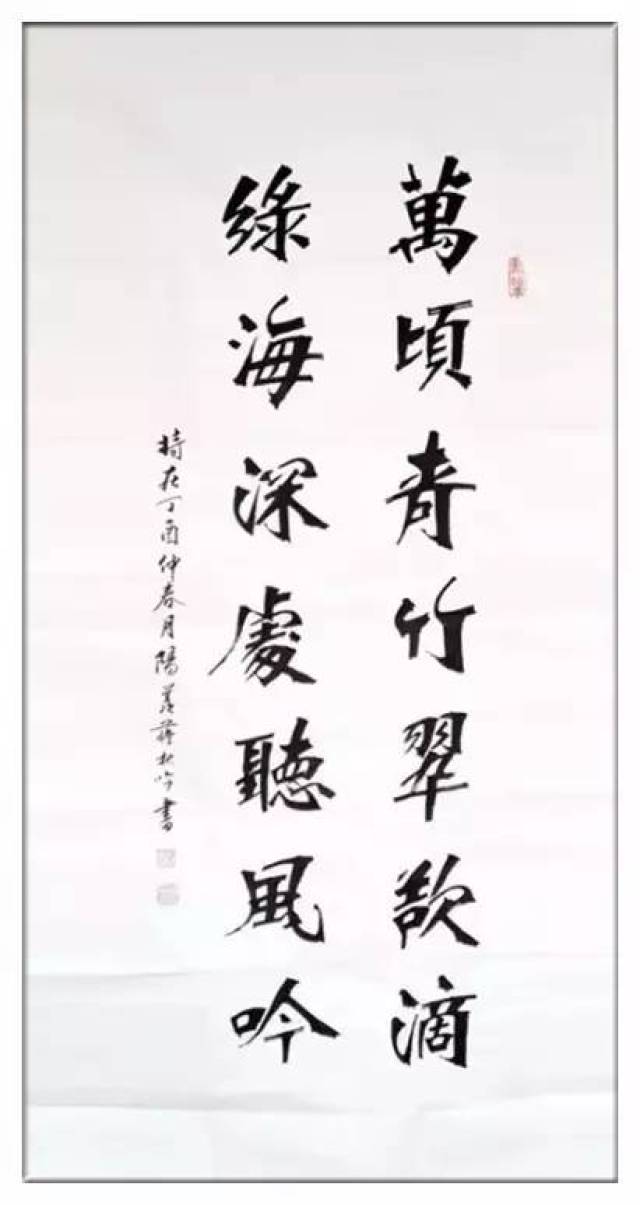 萬頃青竹翠欲滴
綠海深處聽風吟
時在丁酉仲春月陽羨蔣秋吟書